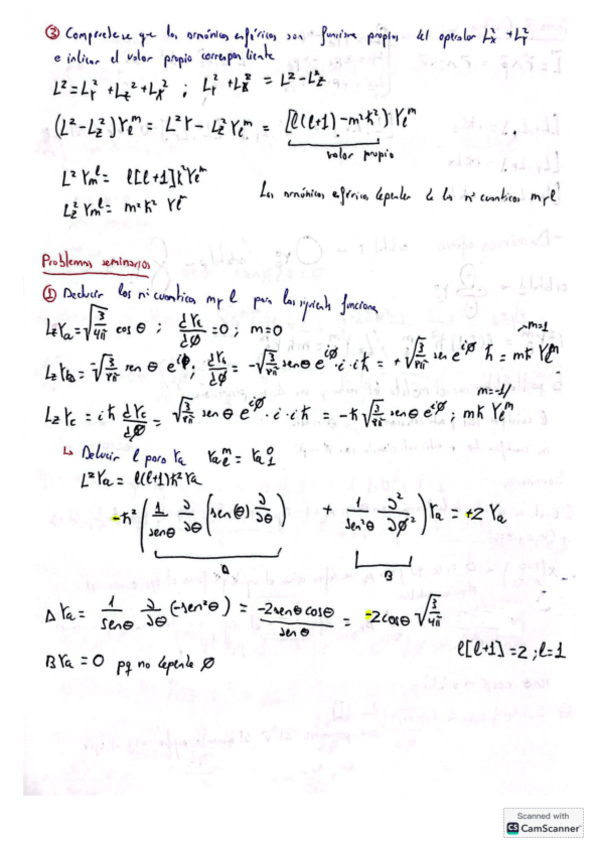 ③ Compruebese que los armónicos esféricos son funciones propias del operador Lx² + Ly²
e indicar el valor propio correspondiente
L² = Ly² + Lz² + Lx² ; Ly² + Lx² = L² - Lz²
(L² - Lz²) Yₗᵐ = L²Y - Lz² Yₗᵐ = [l(l+1) - m²ħ²] Yₗᵐ
valor propio
L² Yₘˡ = l[l+1]ħ² Yₗᵐ
Lz² Yₘˡ = m²ħ² Yₗᵐ
Los armónicos esféricos dependen de los nº cuánticos m y l
Problemas seminarios
① Deducir los nº cuánticos m y l para las siguientes funciones
LzYa = √(3/4π) cos θ ; dYc/d∅ = 0 ; m=0
m=1
LzYb = -√(3/8π) sen θ e^{i∅} ; dYc/d∅ = -√(3/8π) sen θ e^{i∅} · i · iħ = +√(3/8π) sen e^{i∅} ħ = mħ Yₗᵐ
m=-1
Lz Yc = iħ dYc/d∅ = √(3/8π) sen θ e^{i∅} · i · iħ = -ħ √(3/8π) sen θ e^{i∅} ; mħ Yₗᵐ
↳ Deducir l para Ya Yaₗᵐ = Ya₁⁰
L² Ya = l(l+1)ħ² Ya
-ħ² ( 1/senθ ∂/∂θ (senθ) ∂/∂θ ) + 1/sen²θ ∂²/∂∅² ) Ya = +2 Ya
A B
A Ya = 1/senθ ∂/∂θ (-sen²θ) = -2senθ cosθ/senθ = -2cosθ √(3/4π)
l[l+1] = 2 ; l=1
B Ya = 0 pq no depende ∅
Scanned with
CS CamScanner